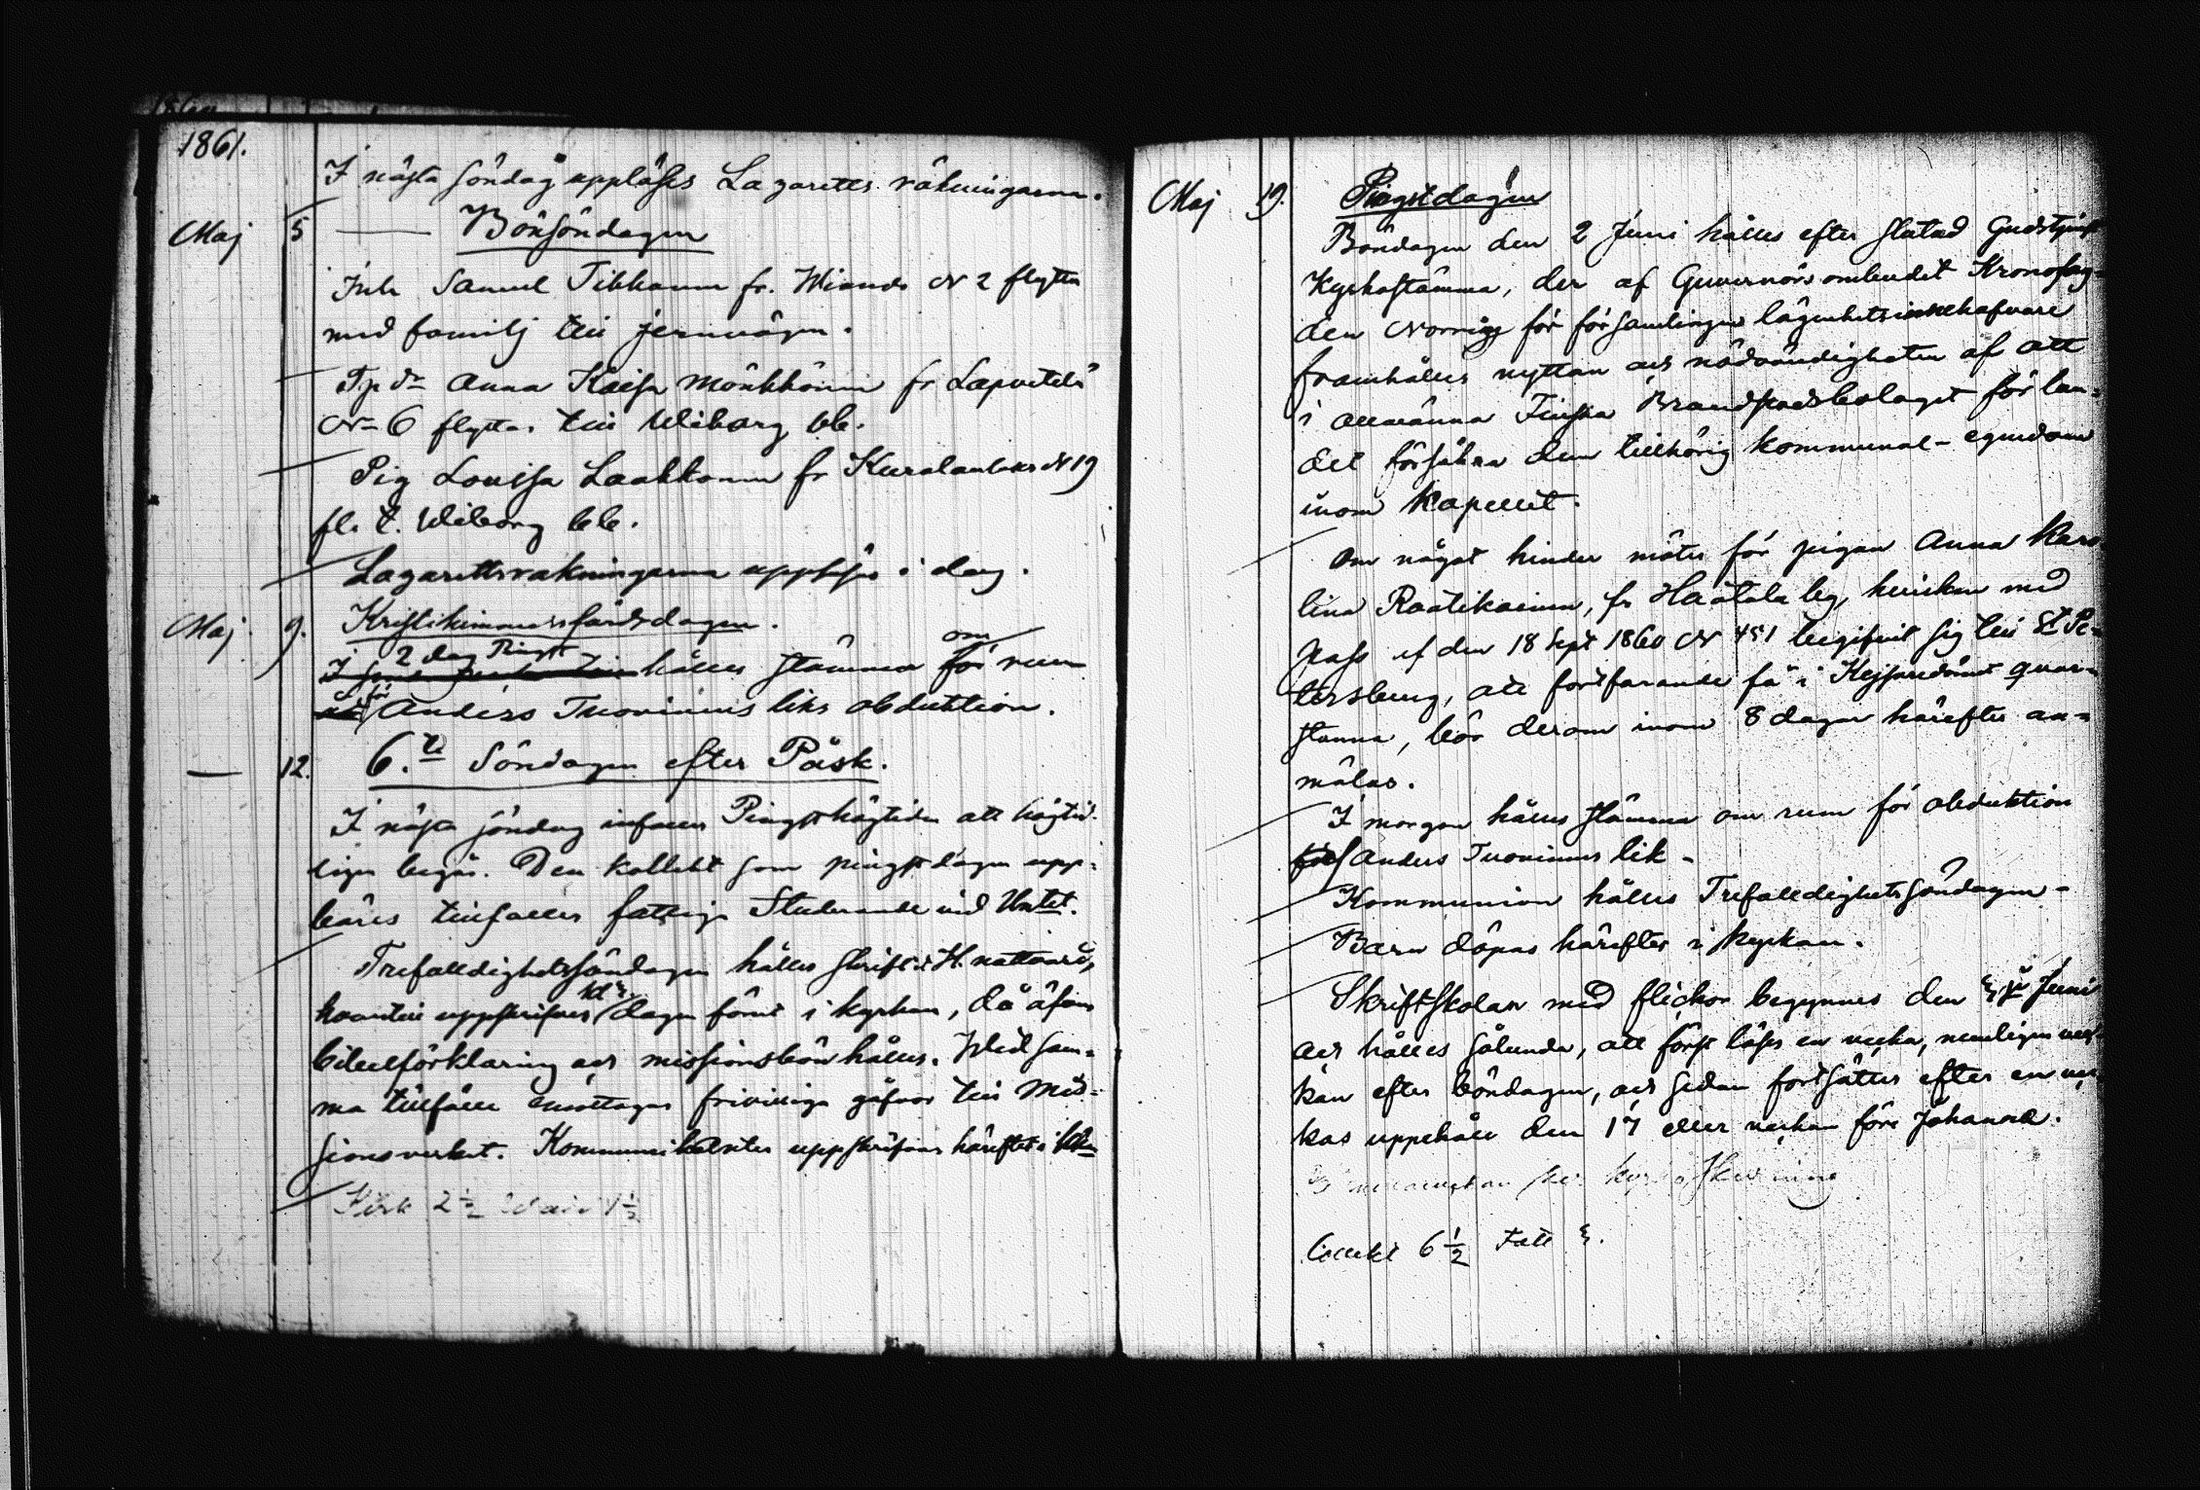 1861.
I nästa söndag uppläses Lazaretts räkningarna.
Maj 5 Bönsöndagen
Inh Samuel Tikkanen fr. N 2 flytta
med familj till jernvägen.
Anna Kaisa Mönkkönen fr
N 6 flyttar till Wiborg
Pig Lovisa Laakkonen fr N 19
fl. t. Wiborg
Lazarettsräkningarna uppläses i dag.
Maj 9. Kristihimmelsfärdsdagen.
2 dag Pingst hålles stämma om rum
för Anders Tuovinens liks obduktion.
— 12. 6.te Söndagen efter Påsk.
I nästa söndag infaller Pingsthögtiden att högtid-
ligen begås. Den kollekt som pingstdagen upp-
bäres tillfaller fattiga Studerande vid
Trefalldighetssöndagen hålles skrift o H. nattvard,
hvartill uppskrifves dagen förut i kyrkan, då äfven
bibelförklaring och missionsbön hålles. Wid sam-
ma tillfälle emottages frivilliga gåfvor till Mis-
sionsverket. Kommunikanter uppskrifvas härefter i
2 1/2 1 1/2
Maj 19. Pingstdagen
Böndagen den 2 Juni hålles efter slutad Gudstjenst
Kyrkostämma, der af Guvernörsombudet Kronofog-
den för församlingens lägenhetsinnehafvare
framhålles nyttan och nödvändigheten af att
i allmänna Finska Brandstodsbolaget för lan-
det försäkra dem tillhörig kommunal-egendom
inom kapellet.
Om något hinder möter för pigan Anna Karo
lina Raatikainen, fr Haatala by, hvilken med
pass af den 18 Sept 1860 N 451 begifvit sig till St Pe-
tersburg, att fortfarande få i Kejsaredömet quar-
stanna, bör derom inom 8 dagar härefter an-
mälas.
I morgon hålles stämma om rum för obduktion
af Anders Tuovinens lik -
Kommunion hålles Trefalldighetssöndagen -
Barn döpas härefter i kyrkan.
Skriftskolan med flickor begynnes den Juni
och hålles sålunda, att först läses en vecka, nemligen vec-
kan efter böndagen, och sedan fortsättes efter en vec
kas uppehåll den 17 eller veckan före Johanne.
6 1/2